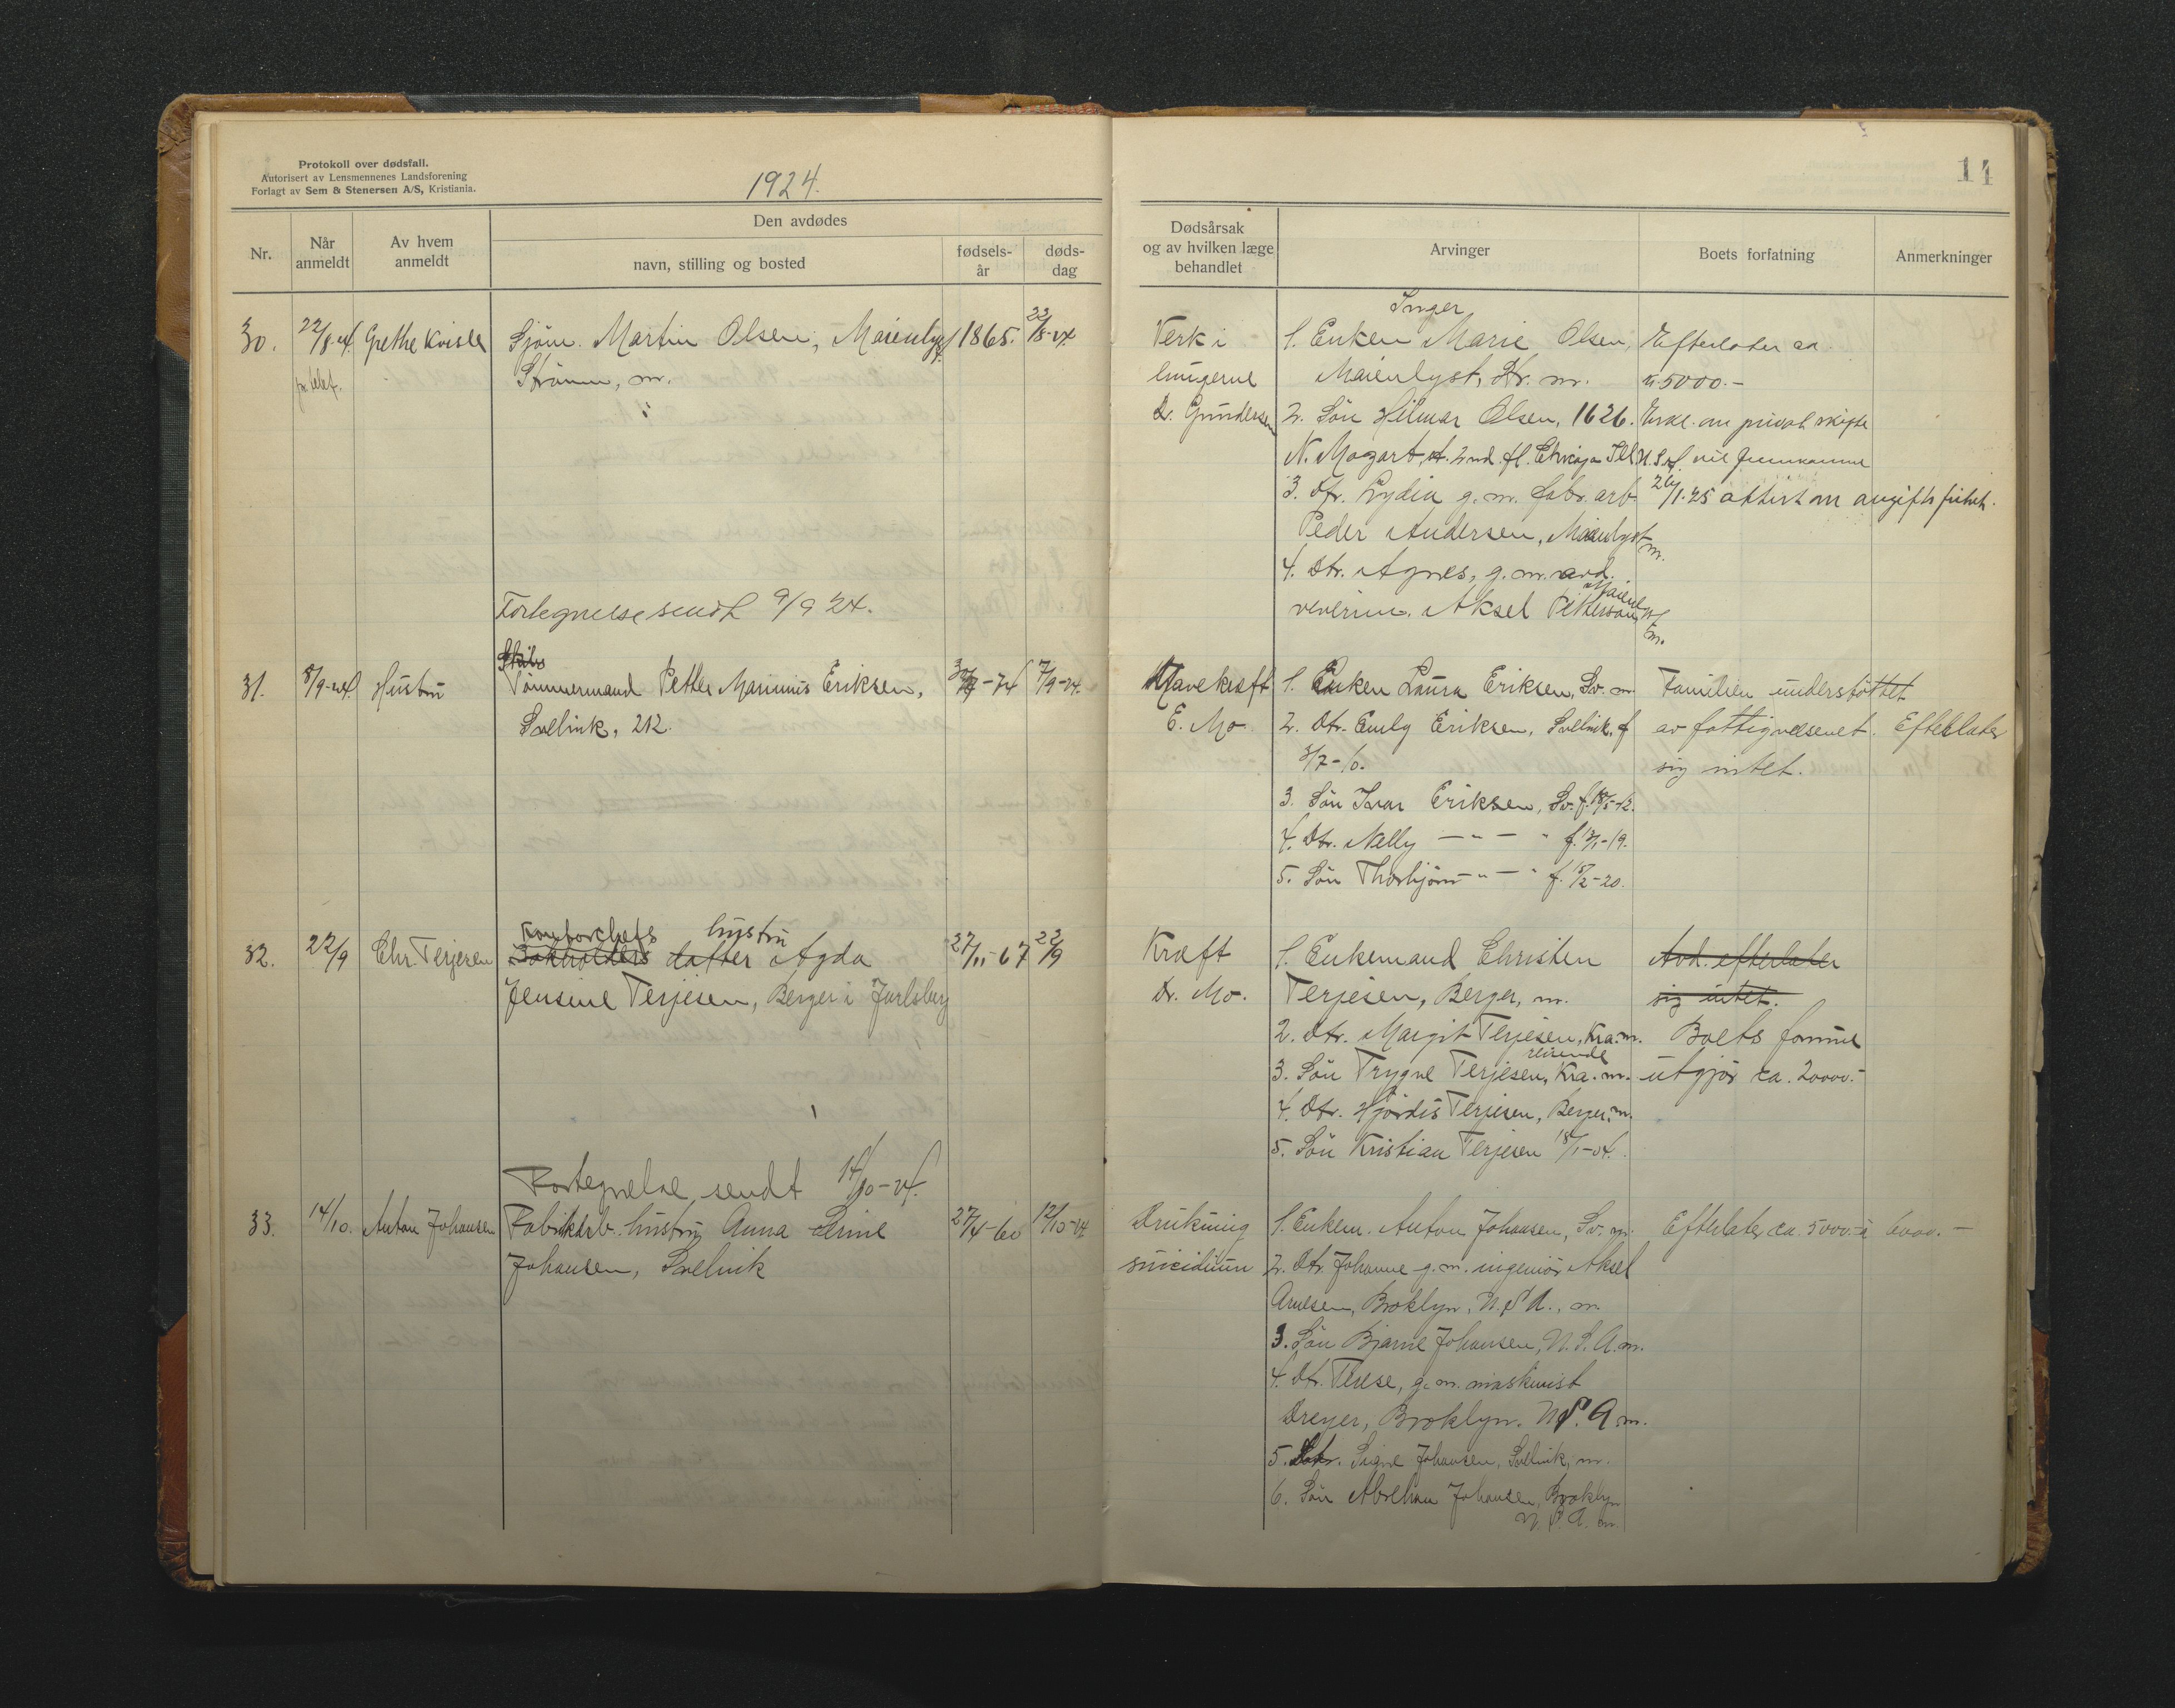 Protokoll over dødsfall.
Autorisert av Lensmennenes Landsforening
Forlagt av Sem & Stenersen A/S, Kristiania.
1924.
Nr.
Når anmeldt
Av hvem anmeldt
Den avdødes
navn, stilling og bosted
fødsels-år
døds-dag
30. 22/8-24. Grethe Kvisle Sjøm. Martin Olsen, Maienlyst 1865. 22/8-24
pr. telef. Strømm, m.
Fortegnelse sendt 9/9 24.
Skibs
31. 8/9-24. Hustru Tømmermand Petter Marinius Eriksen, -74 7/9-24.
Svelvik, 212.
Kontorchefs hustru
32. 22/9 Chr. Terjesen Bokholders datter Agda 27/11-67 22/9
Jensine Terjesen, Berger i Jarlsberg
Fortegnelse sendt 14/10-24.
33. 14/10. Anton Johansen Fabrikarb. hustru Anna Serine 27/4-60 12/10-24
Johansen, Svelvik
11
Dødsårsak
og av hvilken læge
behandlet
Arvinger
Boets forfatning
Anmerkninger
Inger
Verk i 1. Enken Marie Olsen, Efterlater ca.
lungerne Maienlyst, Str. m. kr. 5000.-
Dr. Gundersen 2. Søn Hilmar Olsen, 1626. Erkl. om privat skifte
N. Mozart, st. 2nd. fl. Chicago Ill U.S.A. vil fremkomme
3. Dtr. Lydia g.m. fabr. arb. 26/1-25 attest om avgiftsfrihet.
Peder Andersen, Maienlyst m.
4. Dtr. Agnes, g.m. avd.
Aksel Pettersson, Maienlyst m.
Mavekræft 1. Enken Laura Eriksen, Sv. m. Familien understøttet
E. Mo 2. Dtr. Emily Eriksen, Svelvik, f av fattigvæsenet. Efterlater
3/7-10. sig intet.
3. Søn Ivar Eriksen, Sv. f. 18/5-12.
4. Dtr. Nelly — " — " f. -19.
5. Søn Thorbjørn — " — " f. 15/2-20.
Kræft 1. Enkemand Christen Avd. efterlater
Dr. Mo. Terjesen, Berger, m. sig intet.
2. Dtr. Margit Terjesen, Kra. m. Boets formue
reisende
3. Søn Trygve Terjesen, Kra. m. utgjør ca. 20000.-
4. Dtr. Hjördis Terjesen, Berger, m.
5. Søn Kristian Terjesen 18/1-04.
Drukning 1. Enkem. Anton Johansen, Sv. m. Efterlater ca. 5000.- à 6000.—
suicidium 2. Dtr. Johanne g.m. ingeniør Aksel
Arnesen, Broklyn, U.S.A., m.
3. Søn Bjarne Johansen, U.S.A. m.
4. Dtr. Terese, g.m. maskinist
Dreyer, Broklyn. U.S.A m.
5. Dtr. Signe Johansen, Svelvik, m.
6. Søn Abraham Johansen, Broklyn
U.S.A. m.